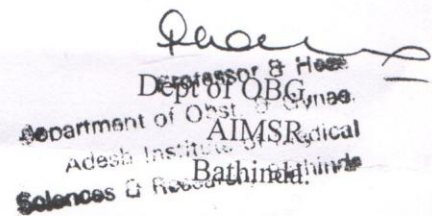 Professor & Head
Dept of OBG,
Department of Obst. & Gynae.
AIMSR,
Adesh Institute of Medical
Bathinda.
Sciences & Research, Bathinda